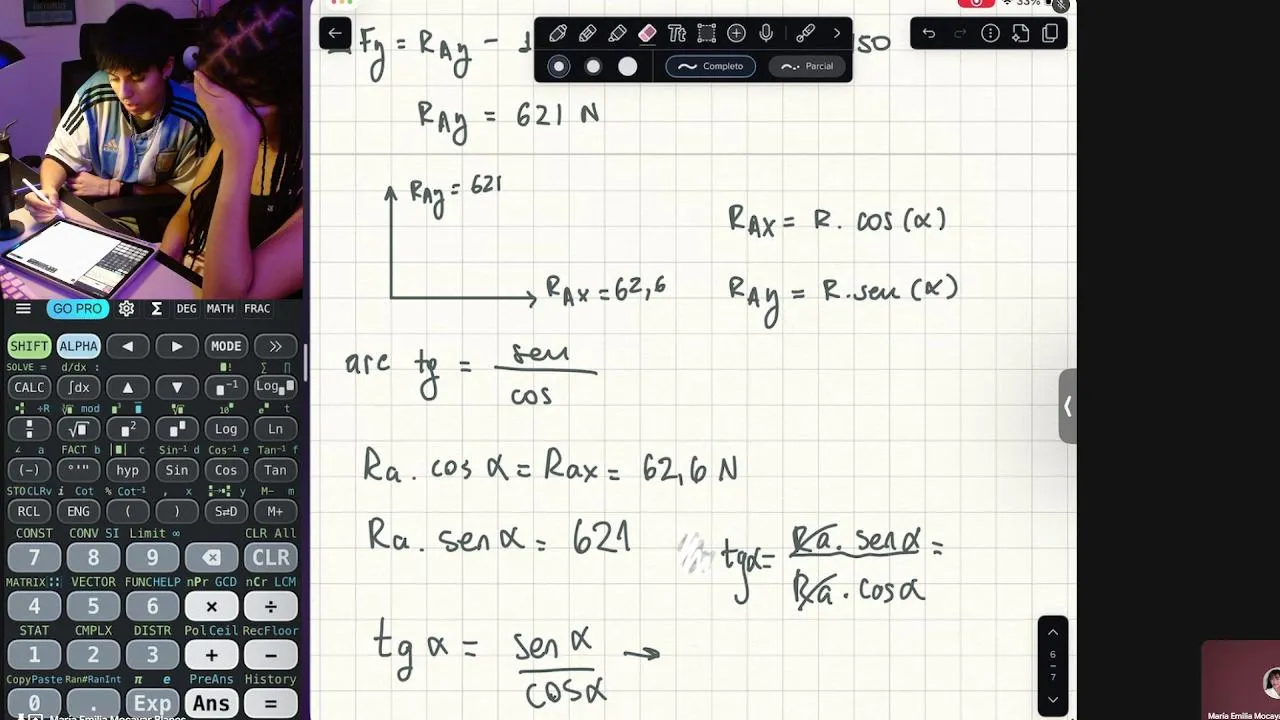 33%
Fy = RAy - 1
50
Completo
Parcial
RAy = 621 N
RAy = 621
RAx = 62,6
RAX = R. cos(α)
RAy = R.sen(α)
arc tg = sen
cos
Ra . cos α = Rax = 62,6 N
Ra . sen α = 621
tgα = Ra . sen α =
Ra . cos α
tg α = sen α →
cos α
6
7
GO PRO Σ DEG MATH FRAC
SHIFT ALPHA ◀ ▶ MODE >>
SOLVE = d/dx :
CALC ∫dx ▲ ▼ Log
mod
√ Log Ln
a FACT b c Sin⁻¹ d Cos⁻¹ e Tan⁻¹ f
(−) °'" hyp Sin Cos Tan
STO CLRv i Cot % Cot⁻¹ , x y M- m
RCL ENG ( ) S⇌D M+
CONST CONV SI Limit ∞ CLR All
7 8 9 CLR
MATRIX VECTOR FUNC HELP nPr GCD nCr LCM
4 5 6 × ÷
STAT CMPLX DISTR Pol Ceil Rec Floor
1 2 3 + −
Copy Paste Ran# RanInt π e PreAns History
0 . Exp Ans =
María Emilia Mocayar Blanes
María Emilia Mocaya